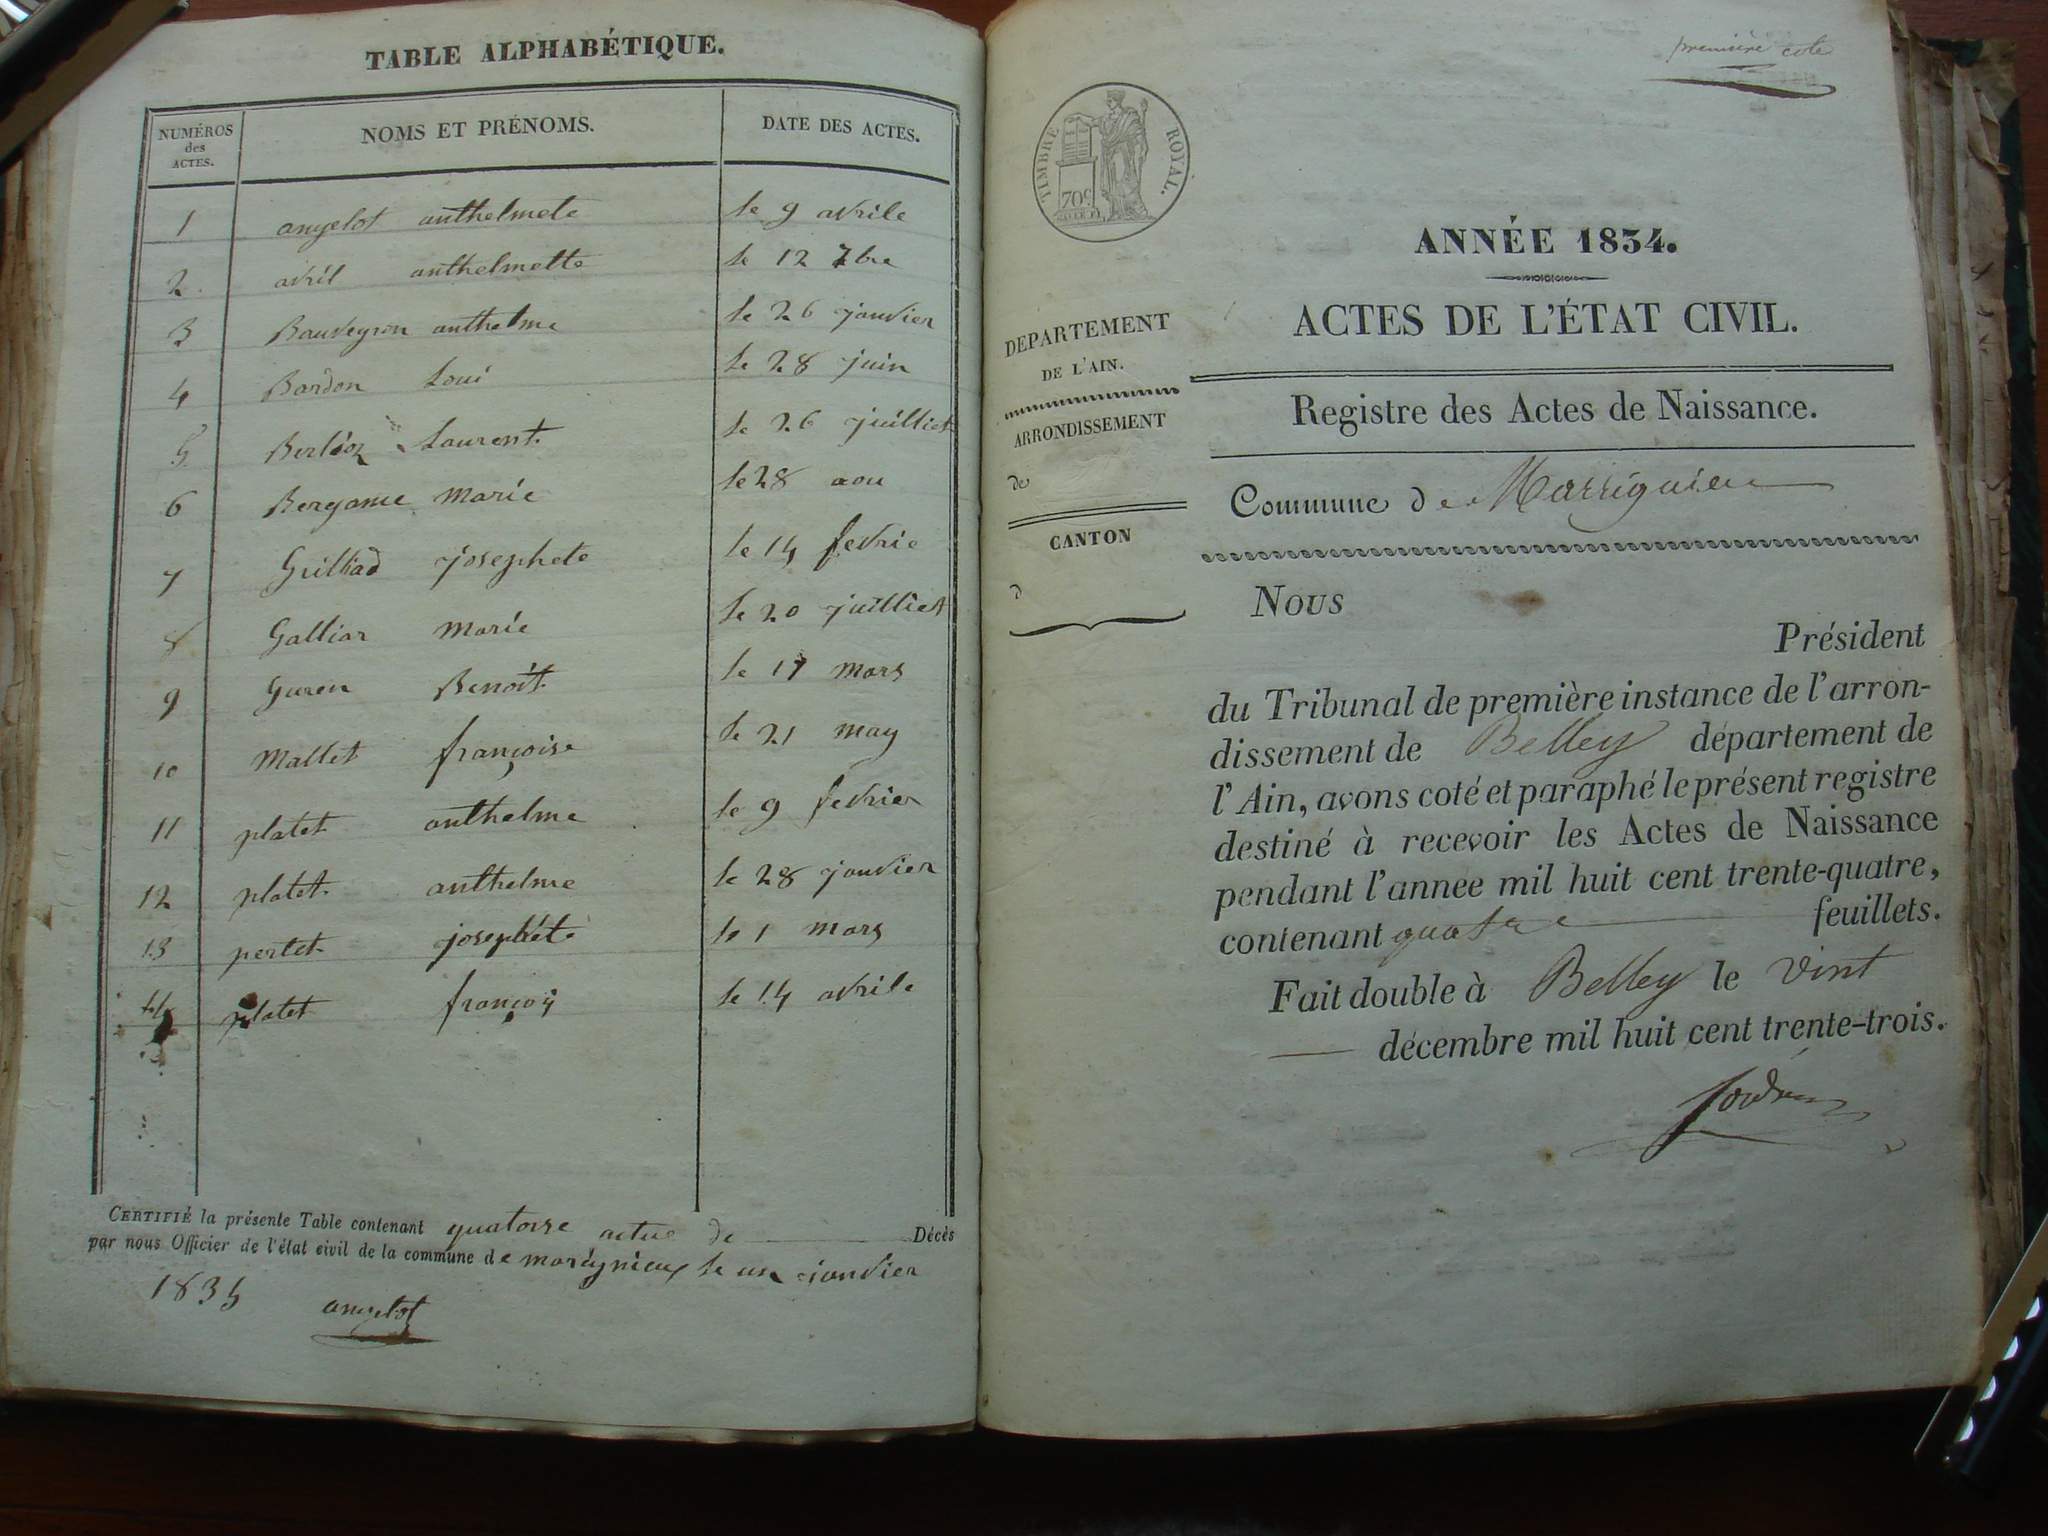 TABLE ALPHABÉTIQUE.
NUMÉROS des ACTES. NOMS ET PRÉNOMS. DATE DES ACTES.
1 angelot anthelmete le 9 avrile
2 avril anthelmette le 12 7bre
3 Bauveyron anthelme le 26 janvier
4 Bardon Loui le 28 juin
5 Berlioz Laurent le 26 juilliet
6 Bergame Marie le 28 aou
7 Guilliad josephete le 14 fevrie
8 Galliar Marie le 20 juilliet
9 guren Benoit le 17 mars
10 Mallet françoise le 21 may
11 platet anthelme le 9 fevrier
12 platet anthelme le 28 janvier
13 pertet josephete le 1 mars
14 platet françoy le 14 avrile
CERTIFIÉ la présente Table contenant quatorse actue de Décès
par nous Officier de l'état civil de la commune de marignieux le un janvier
1835 angelot
première cote
TIMBRE ROYAL.
70c
ANNÉE 1834.
ACTES DE L'ÉTAT CIVIL.
DEPARTEMENT
DE L'AIN.
ARRONDISSEMENT
de
CANTON
d
Registre des Actes de Naissance.
Commune de Marrignieu
Nous
Président
du Tribunal de première instance de l'arron-
dissement de Belley département de
l'Ain, avons coté et paraphé le présent registre
destiné à recevoir les Actes de Naissance
pendant l'annee mil huit cent trente-quatre,
contenant quatre feuillets.
Fait double à Belley le vint
décembre mil huit cent trente-trois.